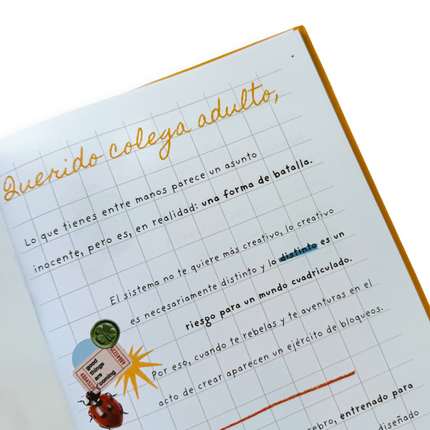 Querido colega adulto,
Lo que tienes entre manos parece un asunto
inocente, pero es, en realidad: una forma de batalla.
El sistema no te quiere más creativo, lo creativo
es necesariamente distinto y lo distinto es un
riesgo para un mundo cuadriculado.
Por eso, cuando te rebelas y te aventuras en el
acto de crear aparecen un ejército de bloqueos.
good
things
are
coming
rebro, entrenado para
diseñado